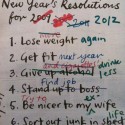 New Year's Resolutions
for 2009 2012
1. Lose weight again
2. Get fit next year
3. Give up alcohol drink less
find job
4. Stand up to boss
try to
5. Be nicer to my wife
ex
6. Sort out junk in shed